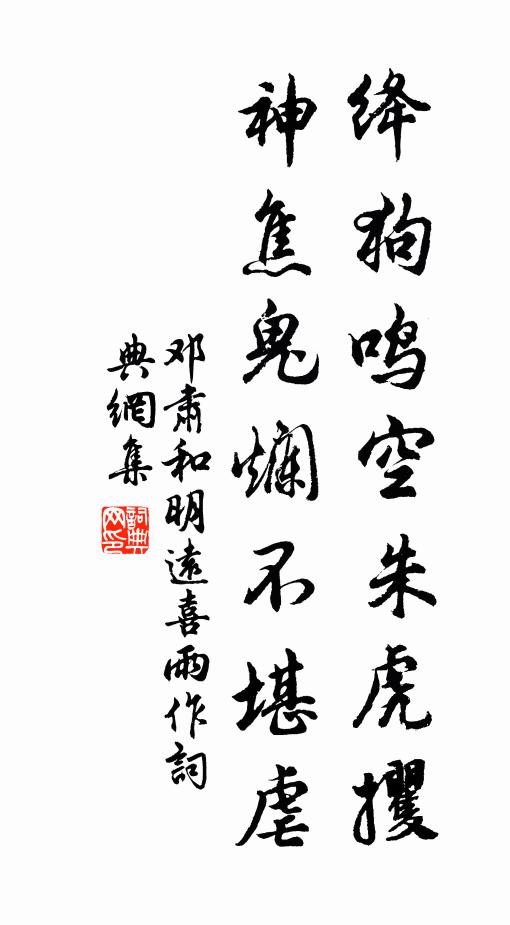 绛狗鸣空朱虎攫
神焦鬼烂不堪虐
邓肃和明遠喜雨作詞
典網集
詞典网印